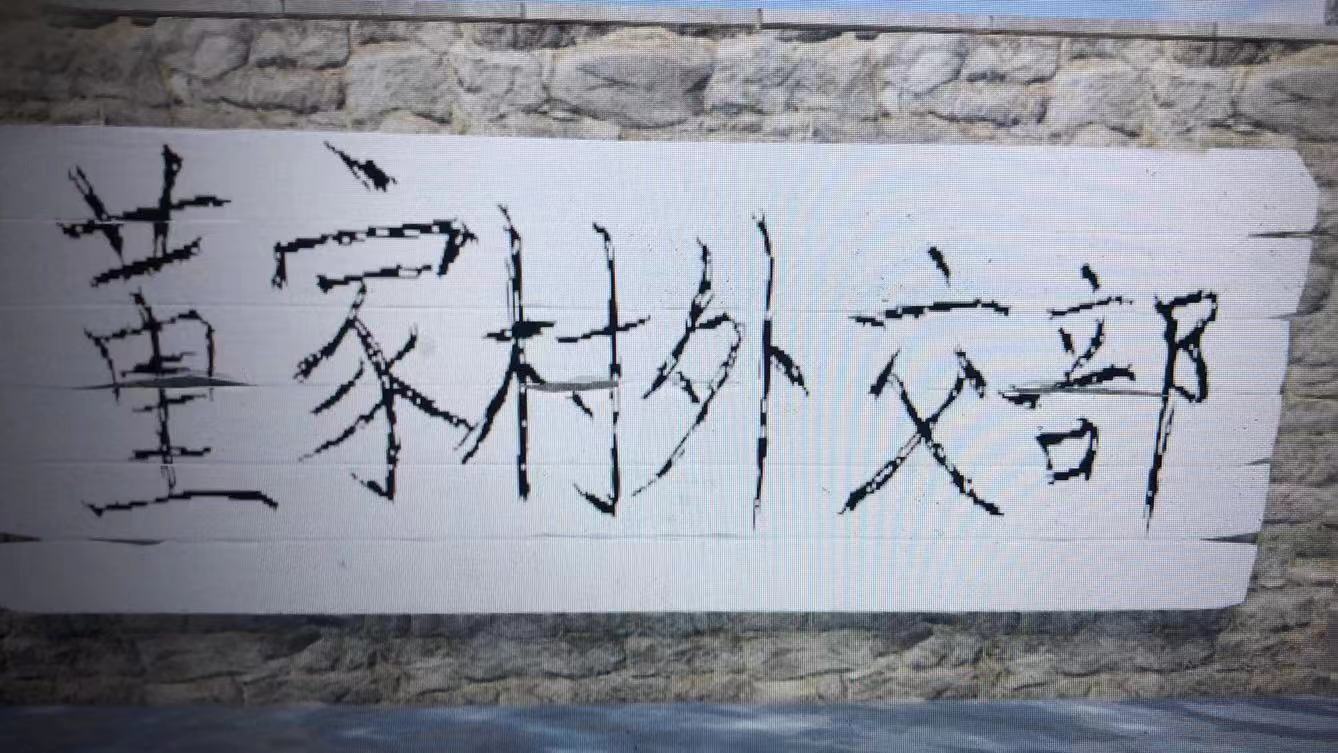 董家村外交部